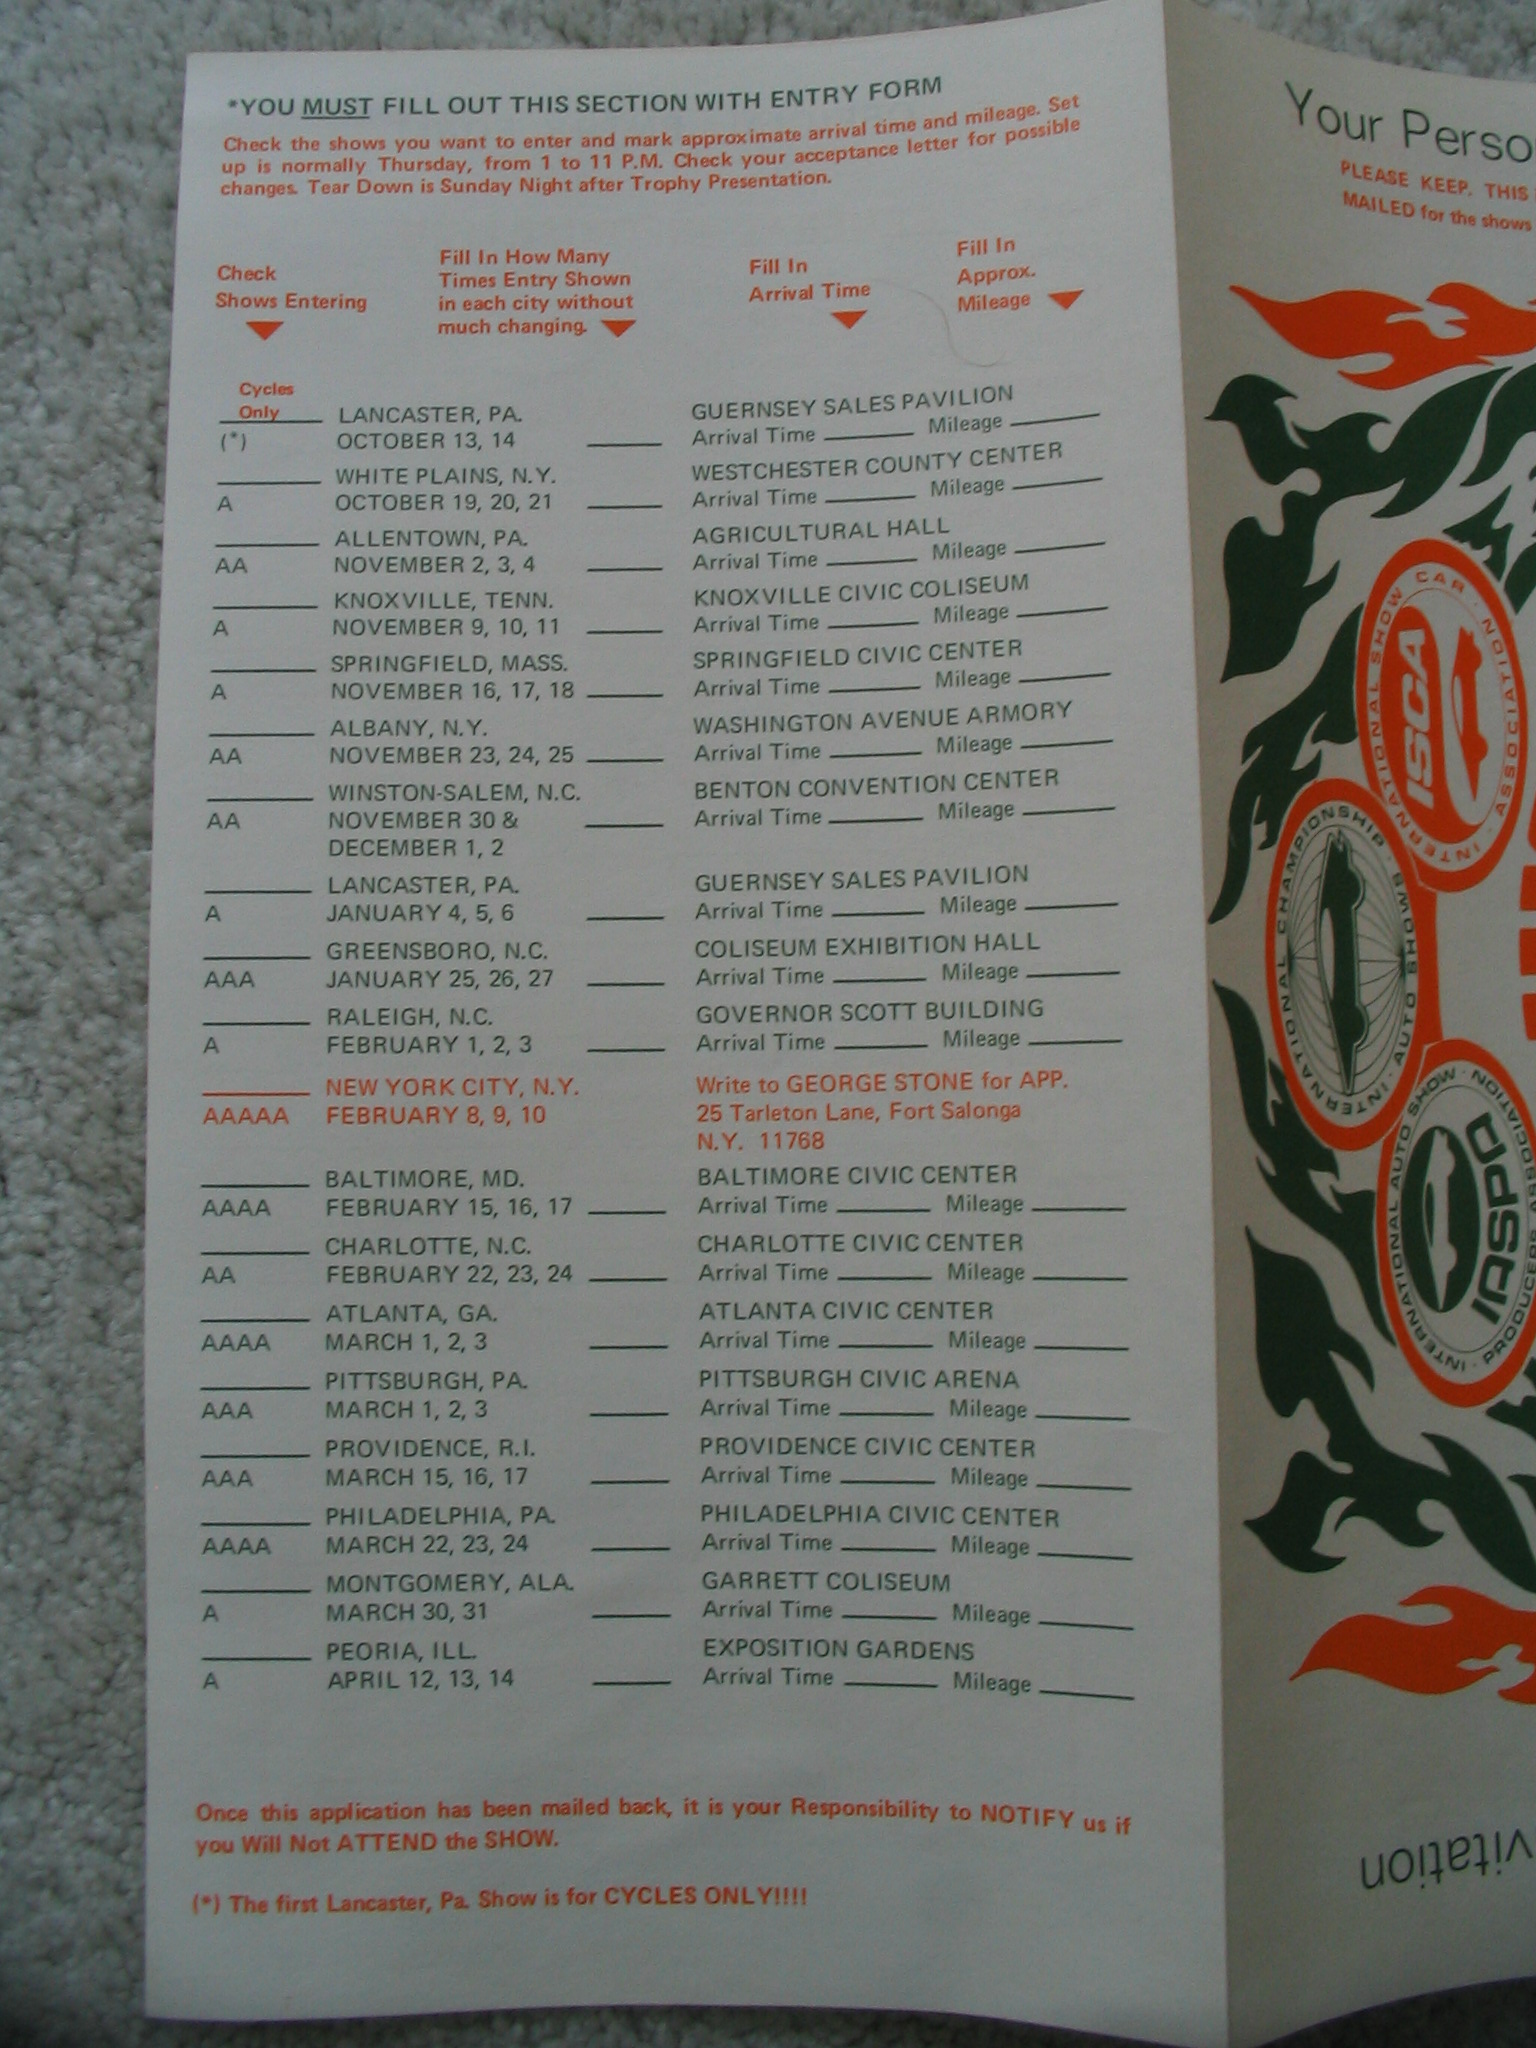 *YOU MUST FILL OUT THIS SECTION WITH ENTRY FORM
Check the shows you want to enter and mark approximate arrival time and mileage. Set
up is normally Thursday, from 1 to 11 P.M. Check your acceptance letter for possible
changes. Tear Down is Sunday Night after Trophy Presentation.
Check
Shows Entering
Fill In How Many
Times Entry Shown
in each city without
much changing.
Fill In
Arrival Time
Fill In
Approx.
Mileage
Cycles
Only
LANCASTER, PA. GUERNSEY SALES PAVILION
(*) OCTOBER 13, 14 Arrival Time Mileage
WHITE PLAINS, N.Y. WESTCHESTER COUNTY CENTER
A OCTOBER 19, 20, 21 Arrival Time Mileage
ALLENTOWN, PA. AGRICULTURAL HALL
AA NOVEMBER 2, 3, 4 Arrival Time Mileage
KNOXVILLE, TENN. KNOXVILLE CIVIC COLISEUM
A NOVEMBER 9, 10, 11 Arrival Time Mileage
SPRINGFIELD, MASS. SPRINGFIELD CIVIC CENTER
A NOVEMBER 16, 17, 18 Arrival Time Mileage
ALBANY, N.Y. WASHINGTON AVENUE ARMORY
AA NOVEMBER 23, 24, 25 Arrival Time Mileage
WINSTON-SALEM, N.C. BENTON CONVENTION CENTER
AA NOVEMBER 30 & Arrival Time Mileage
DECEMBER 1, 2
LANCASTER, PA. GUERNSEY SALES PAVILION
A JANUARY 4, 5, 6 Arrival Time Mileage
GREENSBORO, N.C. COLISEUM EXHIBITION HALL
AAA JANUARY 25, 26, 27 Arrival Time Mileage
RALEIGH, N.C. GOVERNOR SCOTT BUILDING
A FEBRUARY 1, 2, 3 Arrival Time Mileage
NEW YORK CITY, N.Y. Write to GEORGE STONE for APP.
AAAAA FEBRUARY 8, 9, 10 25 Tarleton Lane, Fort Salonga
N.Y. 11768
BALTIMORE, MD. BALTIMORE CIVIC CENTER
AAAA FEBRUARY 15, 16, 17 Arrival Time Mileage
CHARLOTTE, N.C. CHARLOTTE CIVIC CENTER
AA FEBRUARY 22, 23, 24 Arrival Time Mileage
ATLANTA, GA. ATLANTA CIVIC CENTER
AAAA MARCH 1, 2, 3 Arrival Time Mileage
PITTSBURGH, PA. PITTSBURGH CIVIC ARENA
AAA MARCH 1, 2, 3 Arrival Time Mileage
PROVIDENCE, R.I. PROVIDENCE CIVIC CENTER
AAA MARCH 15, 16, 17 Arrival Time Mileage
PHILADELPHIA, PA. PHILADELPHIA CIVIC CENTER
AAAA MARCH 22, 23, 24 Arrival Time Mileage
MONTGOMERY, ALA. GARRETT COLISEUM
A MARCH 30, 31 Arrival Time Mileage
PEORIA, ILL. EXPOSITION GARDENS
A APRIL 12, 13, 14 Arrival Time Mileage
Once this application has been mailed back, it is your Responsibility to NOTIFY us if
you Will Not ATTEND the SHOW.
(*) The first Lancaster, Pa. Show is for CYCLES ONLY!!!!
Your Perso
PLEASE KEEP. THIS
MAILED for the shows
INTERNATIONAL SHOW CAR · ASSOCIATION ·
ISCA
INTERNATIONAL CHAMPIONSHIP · AUTO SHOWS ·
INTERNATIONAL AUTO SHOW · PRODUCERS ASSOCIATION ·
IASPA
vitation